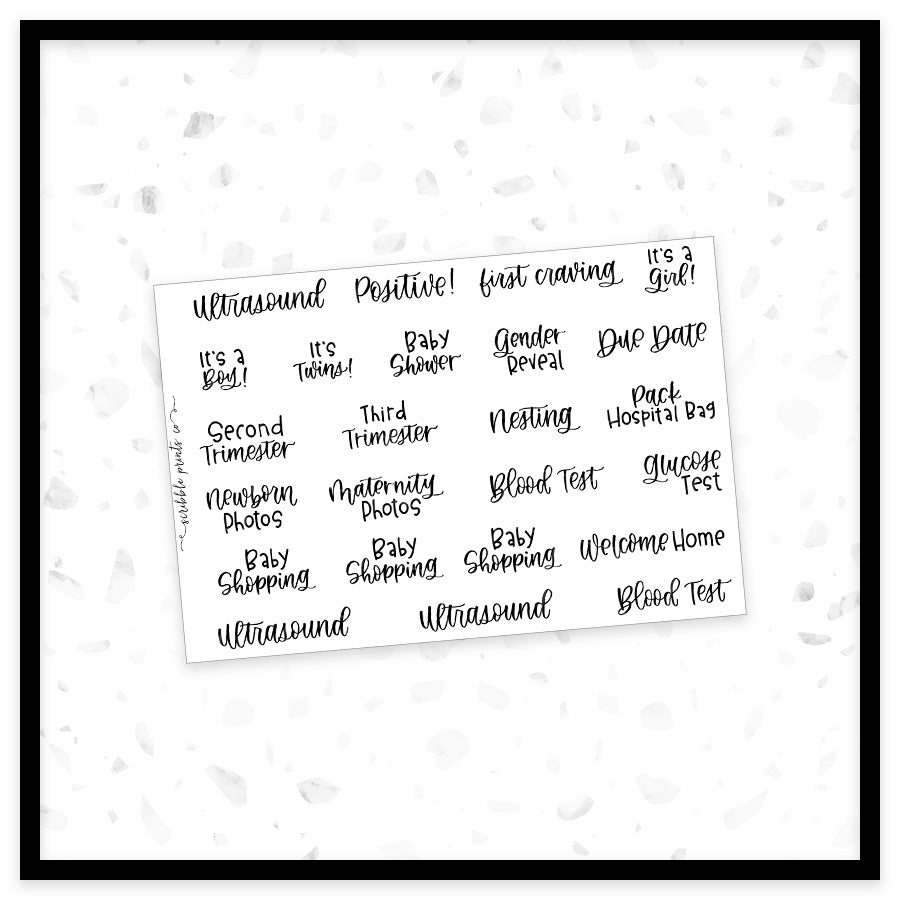 Ultrasound Positive! first craving It's a Girl!
It's a Boy! It's Twins! Baby Shower Gender Reveal Due Date
Second Trimester Third Trimester Nesting Pack Hospital Bag
Newborn Photos Maternity Photos Blood Test Glucose Test
Baby Shopping Baby Shopping Baby Shopping Welcome Home
Ultrasound Ultrasound Blood Test
scribble prints co